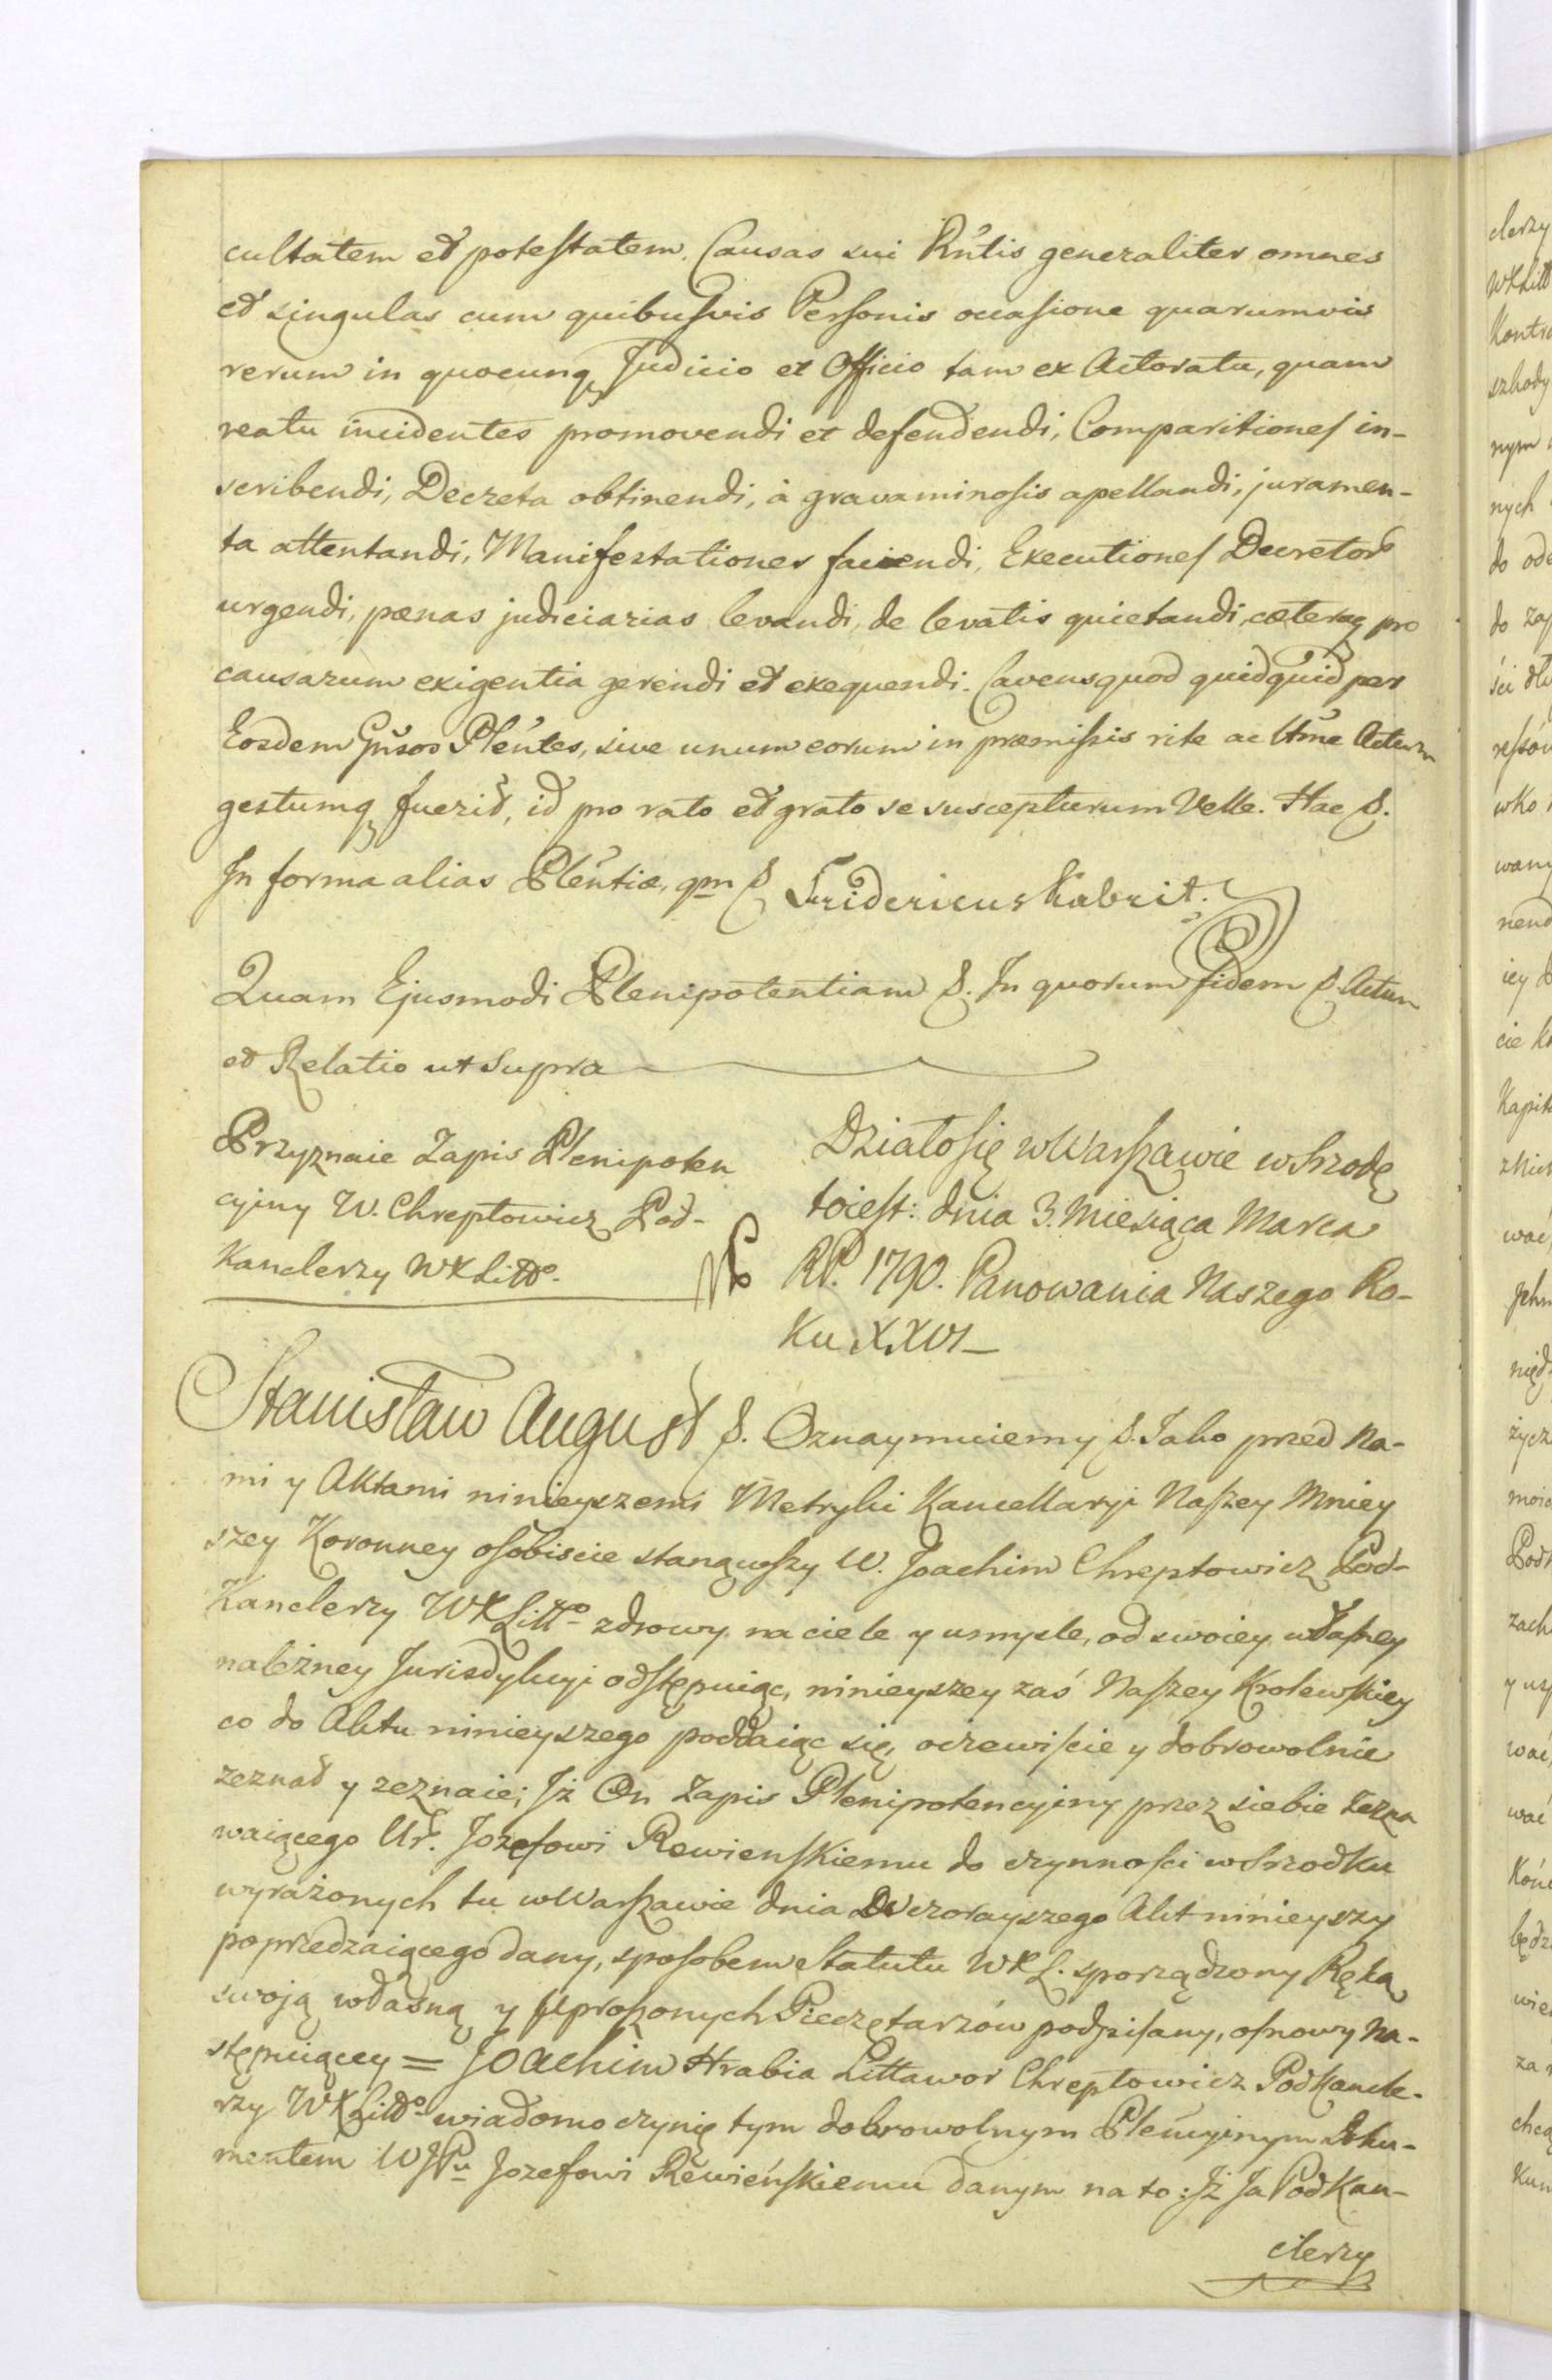 cultatem et potestatem. Causas sui Rntis generaliter omnes
et singulas cum quibusvis Personis occasione quarumvis
rerum in quocunq Judicio et Officio tam ex Actoratu, quam
reatu incidentes promovendi et defendendi, Comparitiones in-
scribendi, Decreta obtinendi, à gravaminosis apellandi, juramen-
ta attentandi, Manifestationes faciendi, Executiones Decretor
urgendi, pænas judiciarias levandi, de levatis quietandi, cæteraq pro
causarum exigentia gerendi et exequendi. Cavens quod quidquid per
Eosdem Gnsos Plentes, sive unum eorum in præmissis rite ac ltme Actum
gestumq fuerit, id pro rato et grato se suscepturum Velle. Hac &.
In forma alias Plentiæ, qm & Fridericus Kabrit.
Quam Ejusmodi Plenipotentiam &. In quorum fidem &. Actum
et Relatio ut Supra
Przyznaie Zapis Plenipoten
cyiny W. Chreptowicz Pod-
Kanclerzy WXLitto
Działo się w Warszawie w Srzodę
toiest: dnia 3. Miesiąca Marca
RP. 1790. Panowania Naszego Ro-
Ku XXVI
Stanisław August &. Oznaymuiemy &. Jako przed Na-
mi y Aktami ninieyszemi Metryki Kancellaryi Naszey Mniey
szey Koronney osobiscie stanąwszy W. Joachim Chreptowicz Pod-
Kanclerzy WXLitto zdrowy na ciele y umysle, od swoiey własney
należney Jurisdykcyi odstępuiąc, ninieyszey zaś Naszey Krolewskiey
co do Aktu ninieyszego poddaiąc się, oczewiście y dobrowolnie
zeznał y zeznaie; Jż On Zapis Plenipotencyiny przez siebie zezna
waiącego Ur. Jozefowi Rewienskiemu do czynności w Srzodku
wyrażonych tu w Warszawie dnia Wczorayszego Akt ninieyszy
poprzedzaiącego dany, sposobem Statutu WXL. sporządzony Ręką
swoją własną y uproszonych Pieczętarzów podpisany, osnowy Na-
stępuiącey = Joachim Hrabia Littawor Chreptowicz Podkancle-
rzy WXLitto wiadomo czynię tym dobrowolnym Plencyinym Doku-
mentem WJPu Jozefowi Rewieńskiemu danym na to: Jż Ja Podkan-
clerzy